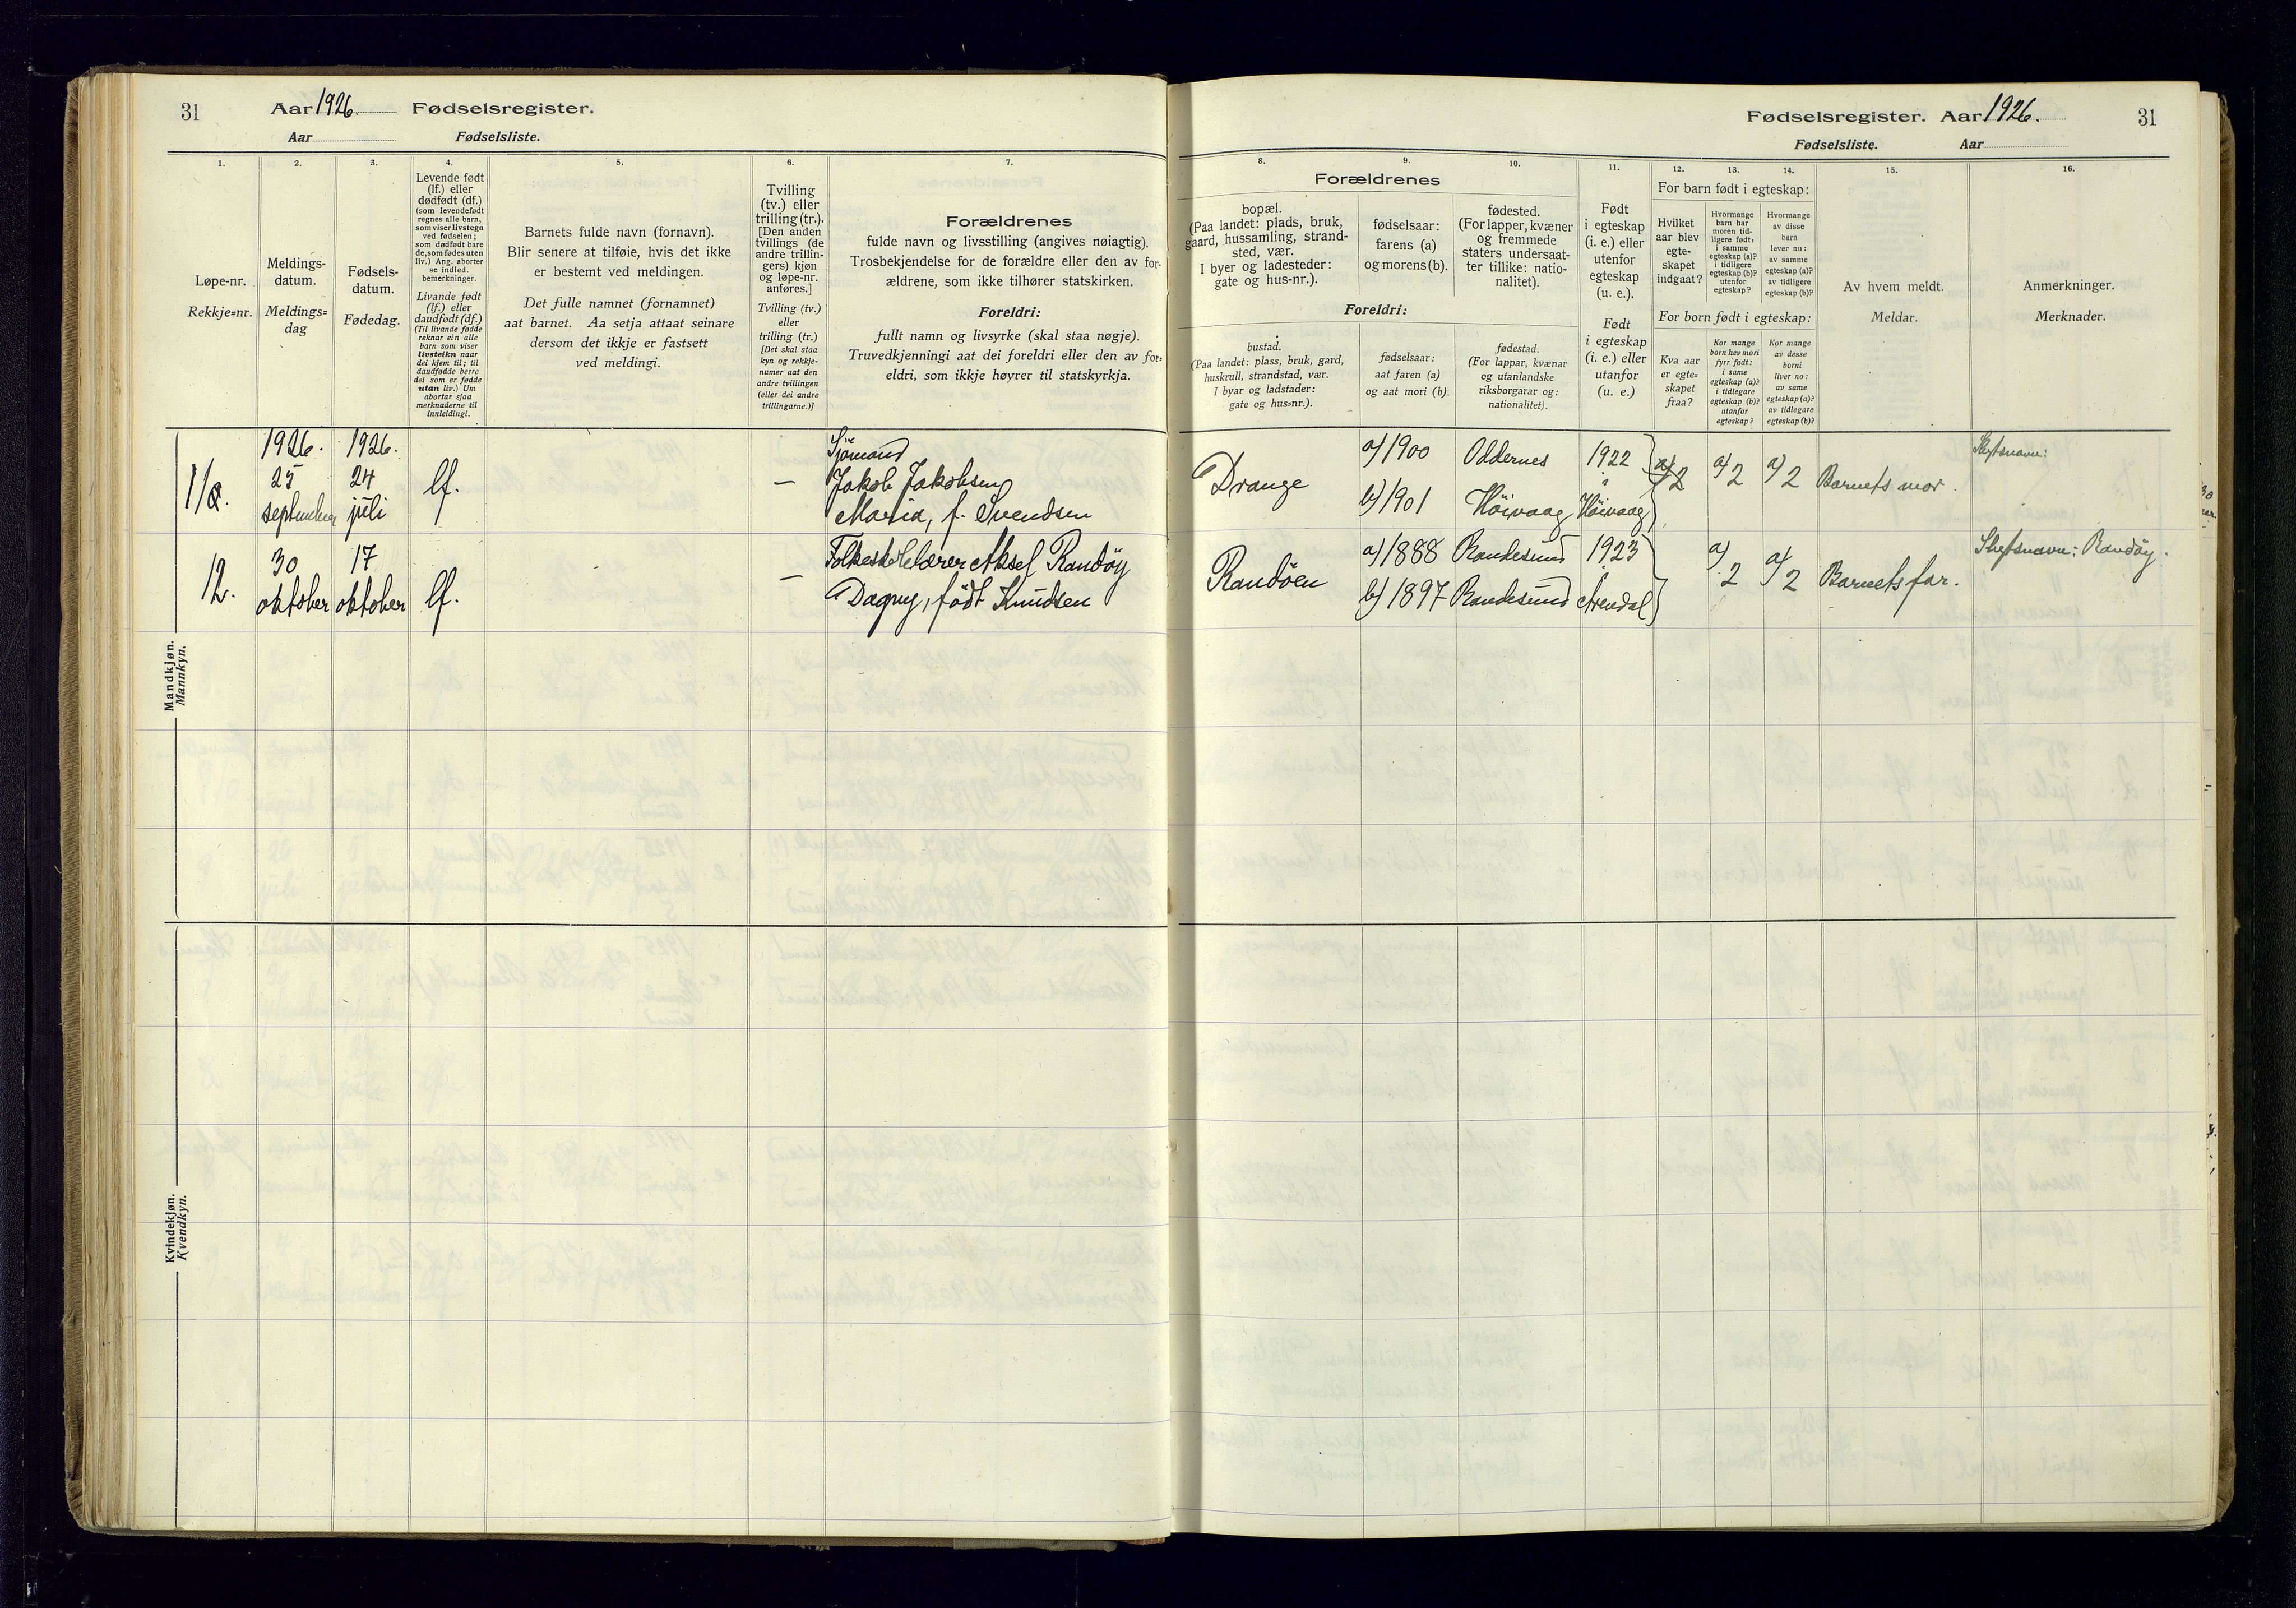 31
Aar 1926. Fødselsregister.
Aar Fødselsliste.
1. 2. 3. 4. 5. 6. 7.
Løpe-nr.
Rekkje=nr.
Meldings-
datum.
Meldings=
dag
Fødsels-
datum.
Fødedag.
Levende født
(lf.) eller
dødfødt (df.)
(som levendefødt
regnes alle barn,
som viser livstegn
ved fødselen;
som dødfødt bare
de, som fødes uten
liv.) Ang. aborter
se indled.
bemerkninger.
Livande født
(lf.) eller
daudfødt (df.)
(Til livande fødde
reknar ein alle
barn som viser
livsteikn naar
dei kjem til; til
daudfødde berre
dei som er fødde
utan liv.) Um
abortar sjaa
merknaderne til
innleidingi.
Barnets fulde navn (fornavn).
Blir senere at tilføie, hvis det ikke
er bestemt ved meldingen.
Det fulle namnet (fornamnet)
aat barnet. Aa setja attaat seinare
dersom det ikkje er fastsett
ved meldingi.
Tvilling
(tv.) eller
trilling (tr.).
[Den anden
tvillings (de
andre trillin-
gers) kjøn
og løpe-nr.
anføres.]
Tvilling (tv.)
eller
trilling (tr.)
[Det skal staa
kyn og rekkje-
numer aat den
andre tvillingen
(eller dei andre
trillingarne.)]
Forældrenes
fulde navn og livsstilling (angives nøiagtig).
Trosbekjendelse for de forældre eller den av for-
ældrene, som ikke tilhører statskirken.
Foreldri:
fullt namn og livsyrke (skal staa nøgje).
Truvedkjenningi aat dei foreldri eller den av for=
eldri, som ikkje høyrer til statskyrkja.
Mandkjøn.
Mannkyn.
1926. 1926. Sjømand
11. 25 24 lf. — Jakob Jakobsen
september juli Maria, f. Svendsen
12. 30 17 lf. — Folkeskolelærer Aksel Randöy
oktober oktober Dagny, født Knudsen
Kvindekjøn.
Kvendkyn.
Fødselsregister. Aar 1926. 31
Fødselsliste. Aar
8. 9. 10. 11. 12. 13. 14. 15. 16.
Forældrenes
bopæl.
(Paa landet: plads, bruk,
gaard, hussamling, strand-
sted, vær.
I byer og ladesteder:
gate og hus-nr.).
fødselsaar:
farens (a)
og morens (b).
fødested.
(For lapper, kvæner
og fremmede
staters undersaat-
ter tillike: natio-
nalitet).
Foreldri:
bustad.
(Paa landet: plass, bruk, gard,
huskrull, strandstad, vær.
I byar og ladstader:
gate og hus=nr.).
fødselsaar:
aat faren (a)
og aat mori (b).
fødestad.
(For lappar, kvænar
og utanlandske
riksborgarar og:
nationalitet).
Født
i egteskap
(i. e.) eller
utenfor
egteskap
(u. e.).
Født
i egteskap
(i. e.) eller
utanfor
(u. e.)
For barn født i egteskap:
Hvilket
aar blev
egte-
skapet
indgaat?
Hvormange
barn har
moren tid-
ligere født:
i samme
egteskap (a)?
i tidligere
egteskap (b)?
utenfor
egteskap?
Hvormange
av disse
barn
lever nu:
av samme
egteskap (a)?
av tidligere
egteskap (b)?
For born født i egteskap:
Kva aar
er egte=
skapet
fraa?
Kor mange
born hev mori
fyrr født:
i same
egteskap (a)?
i tidlegare
egteskap (b)?
utanfor
egteskap?
Kor mange
av desse
borni
liver no:
av same
egteskap (a)?
av tidlegare
egteskap (b)?
Av hvem meldt.
Meldar.
Anmerkninger.
Merknader.
Drange a) 1900 Oddernes 1922 a) 2 a) 2 a) 2 Barnets mor. Slegtsnavn:
i
b) 1901 Höivaag Höivaag
Randöen a) 1888 Randesund 1923 a) 2 a) 2 Barnets far. Slegtsnavn: Randöy.
b) 1897 Randesund Arendal